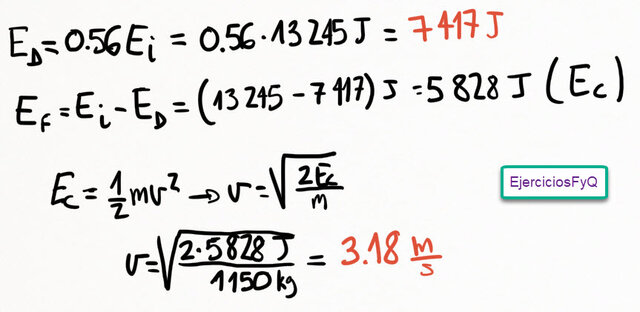 E_D = 0.56 E_i = 0.56 · 13 245 J = 7 417 J
E_F = E_i - E_D = (13 245 - 7 417) J = 5 828 J (E_C)
E_C = 1/2 mv² → v = √(2E_C/m)
EjerciciosFyQ
v = √(2 · 5828 J/1150 kg) = 3.18 m/s